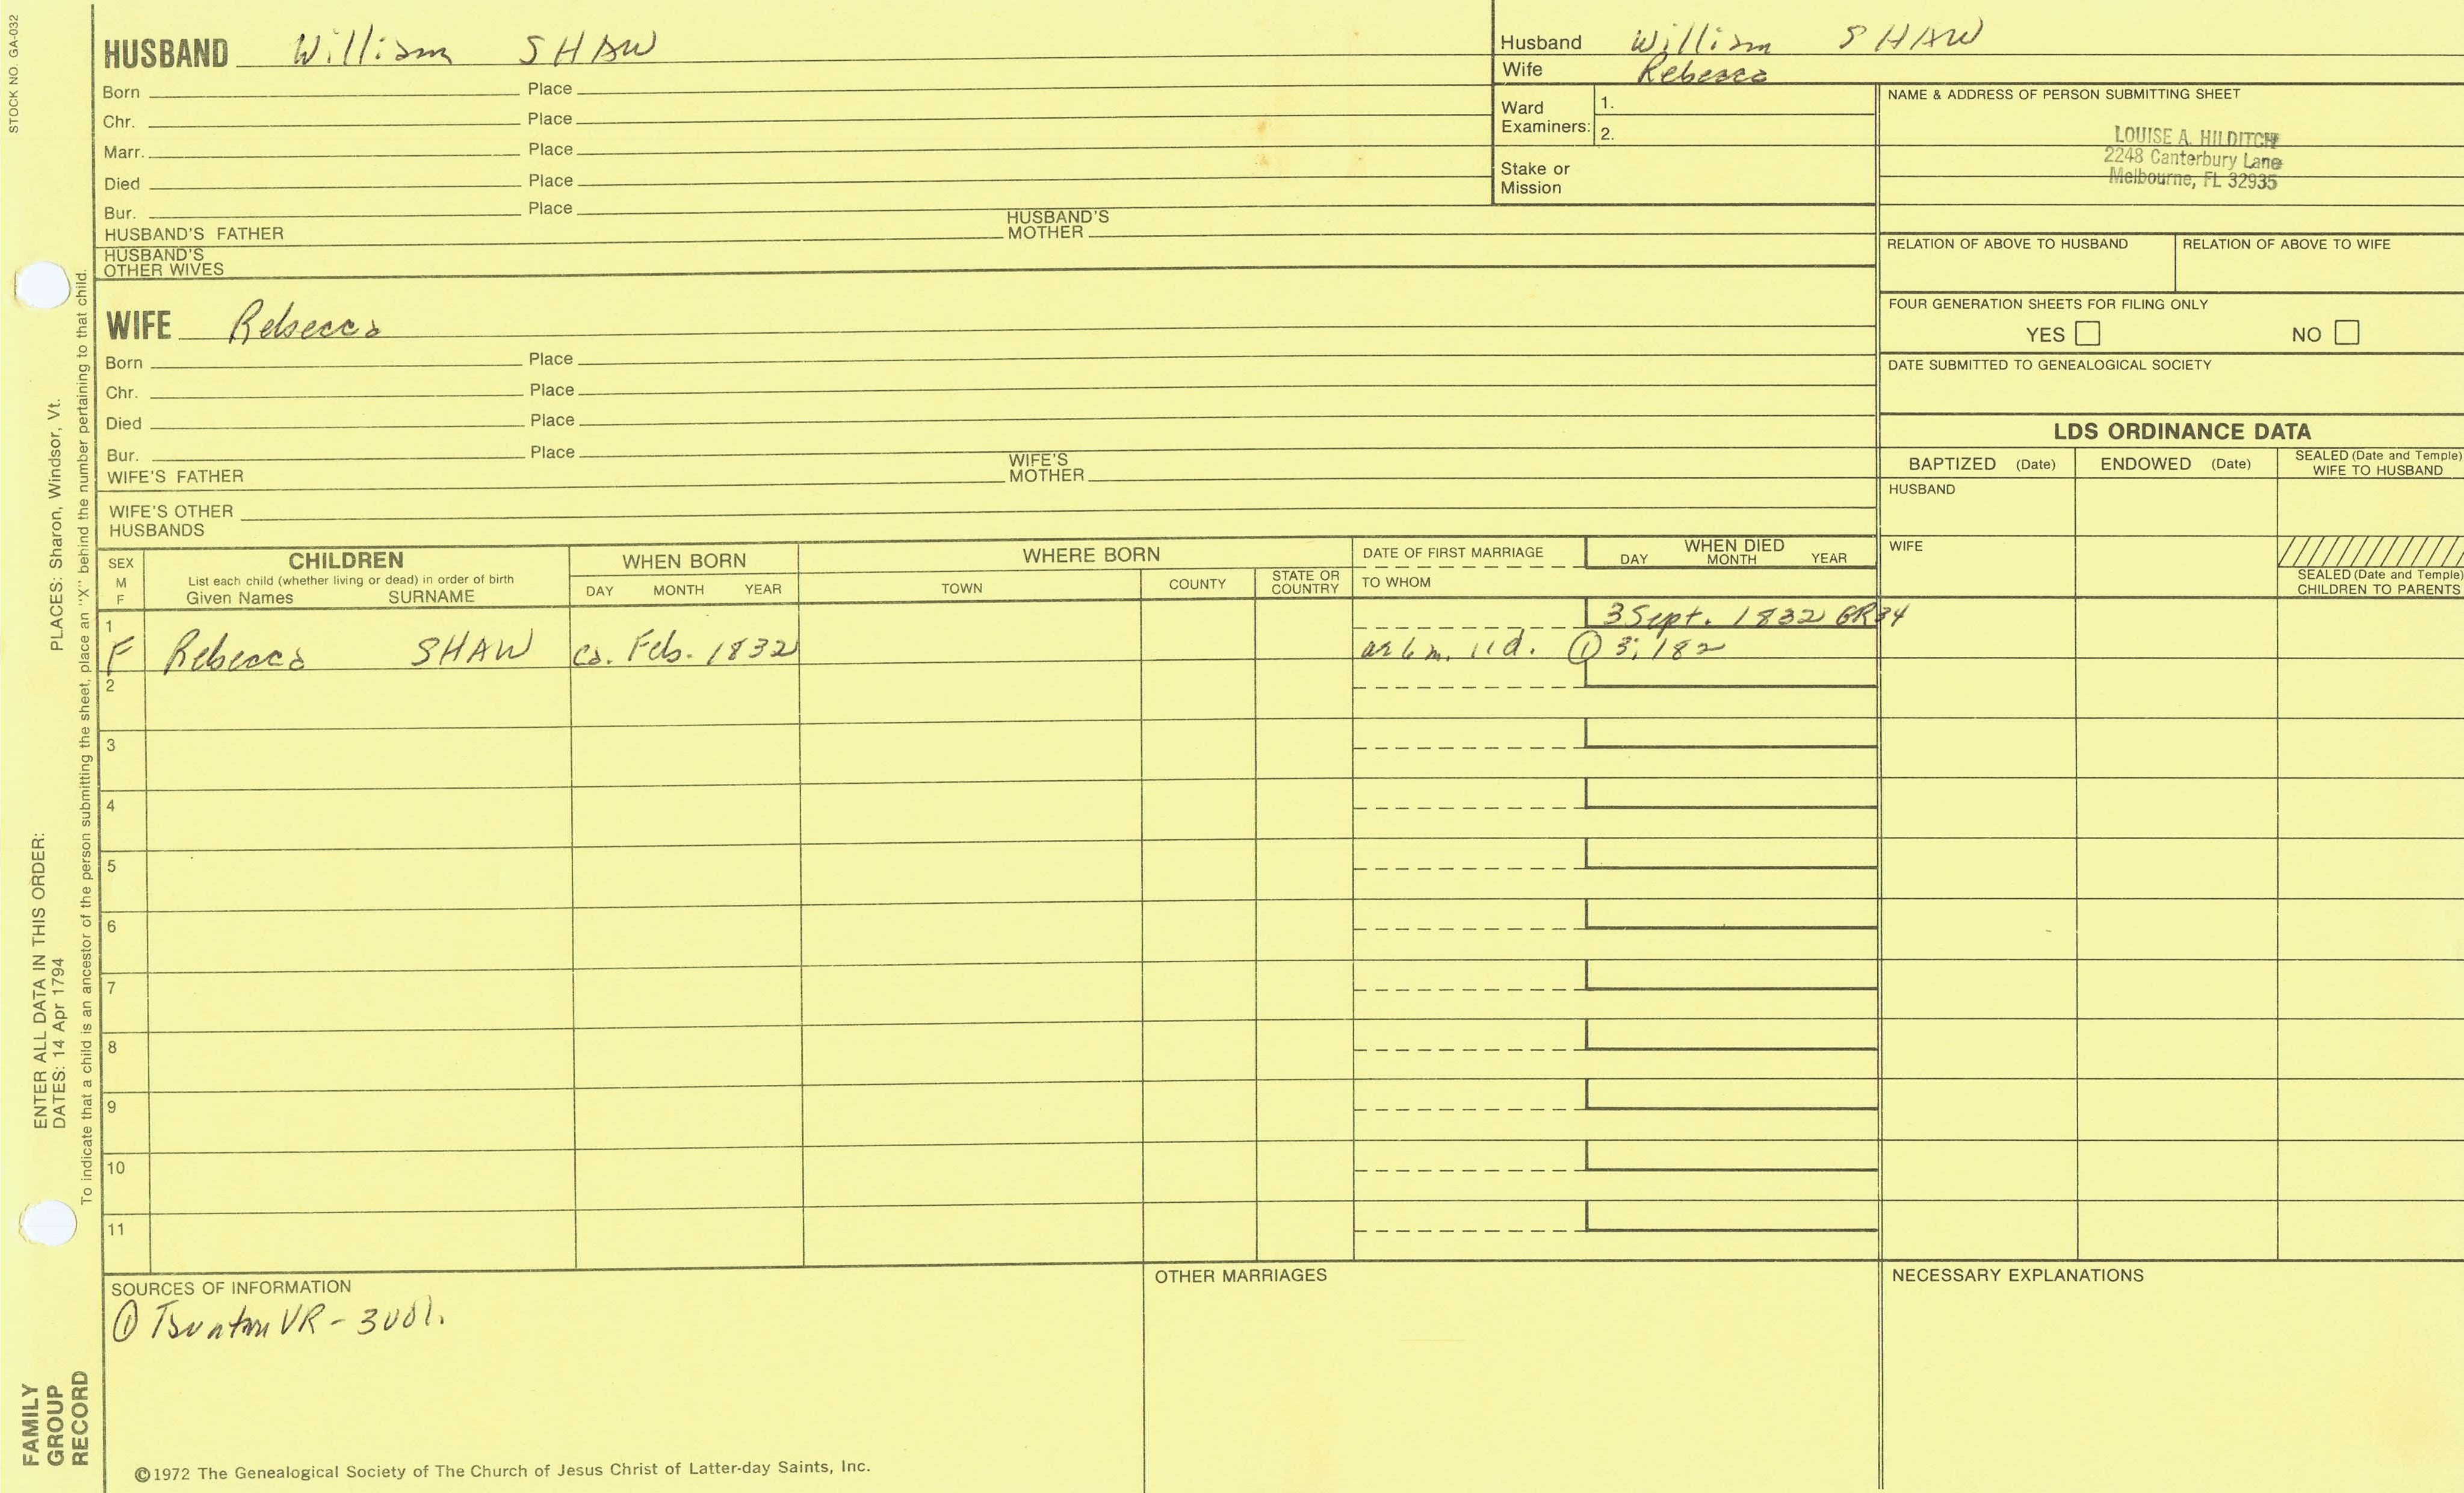 STOCK NO. GA-032
HUSBAND William SHAW
Born Place
Chr. Place
Marr. Place
Died Place
Bur. Place
HUSBAND'S FATHER HUSBAND'S MOTHER
HUSBAND'S OTHER WIVES
Husband William SHAW
Wife Rebecca
Ward Examiners: 1.
2.
Stake or Mission
NAME & ADDRESS OF PERSON SUBMITTING SHEET
LOUISE A. HILDITCH
2248 Canterbury Lane
Melbourne, FL 32935
RELATION OF ABOVE TO HUSBAND RELATION OF ABOVE TO WIFE
FOUR GENERATION SHEETS FOR FILING ONLY
YES NO
DATE SUBMITTED TO GENEALOGICAL SOCIETY
WIFE Rebecca
Born Place
Chr. Place
Died Place
Bur. Place
WIFE'S FATHER WIFE'S MOTHER
WIFE'S OTHER HUSBANDS
LDS ORDINANCE DATA
BAPTIZED (Date) ENDOWED (Date) SEALED (Date and Temple) WIFE TO HUSBAND
HUSBAND
WIFE
SEALED (Date and Temple) CHILDREN TO PARENTS
SEX M F
CHILDREN
List each child (whether living or dead) in order of birth
Given Names SURNAME
WHEN BORN
DAY MONTH YEAR
WHERE BORN
TOWN COUNTY STATE OR COUNTRY
DATE OF FIRST MARRIAGE
TO WHOM
WHEN DIED
DAY MONTH YEAR
1 3 Sept. 1832 GR34
F Rebecca SHAW ca. Feb. 1832 ae 6 m. 11d. ① 3:182
2
3
4
5
6
7
8
9
10
11
SOURCES OF INFORMATION
① Taunton VR - 3 vol.
OTHER MARRIAGES
NECESSARY EXPLANATIONS
©1972 The Genealogical Society of The Church of Jesus Christ of Latter-day Saints, Inc.
FAMILY
GROUP
RECORD
ENTER ALL DATA IN THIS ORDER:
DATES: 14 Apr 1794 PLACES: Sharon, Windsor, Vt.
To indicate that a child is an ancestor of the person submitting the sheet, place an "X" behind the number pertaining to that child.